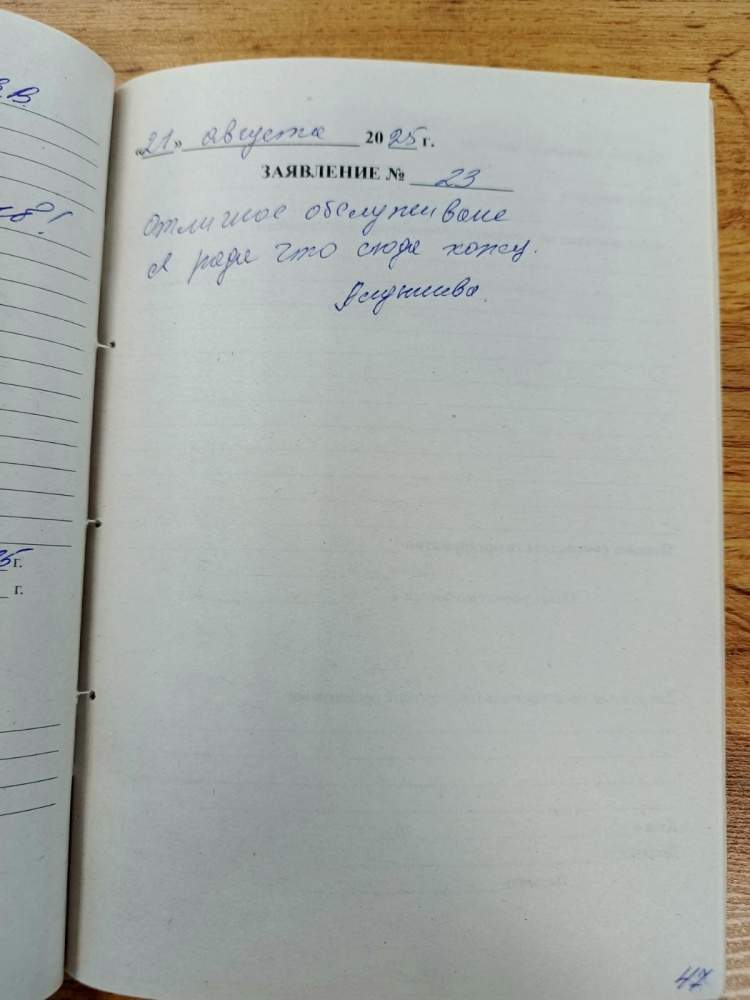 В.
8!
25 г.
г.
«21» августа 2025 г.
ЗАЯВЛЕНИЕ № 23
Отличное обслуживане
Я рада что сюда хожу.
47